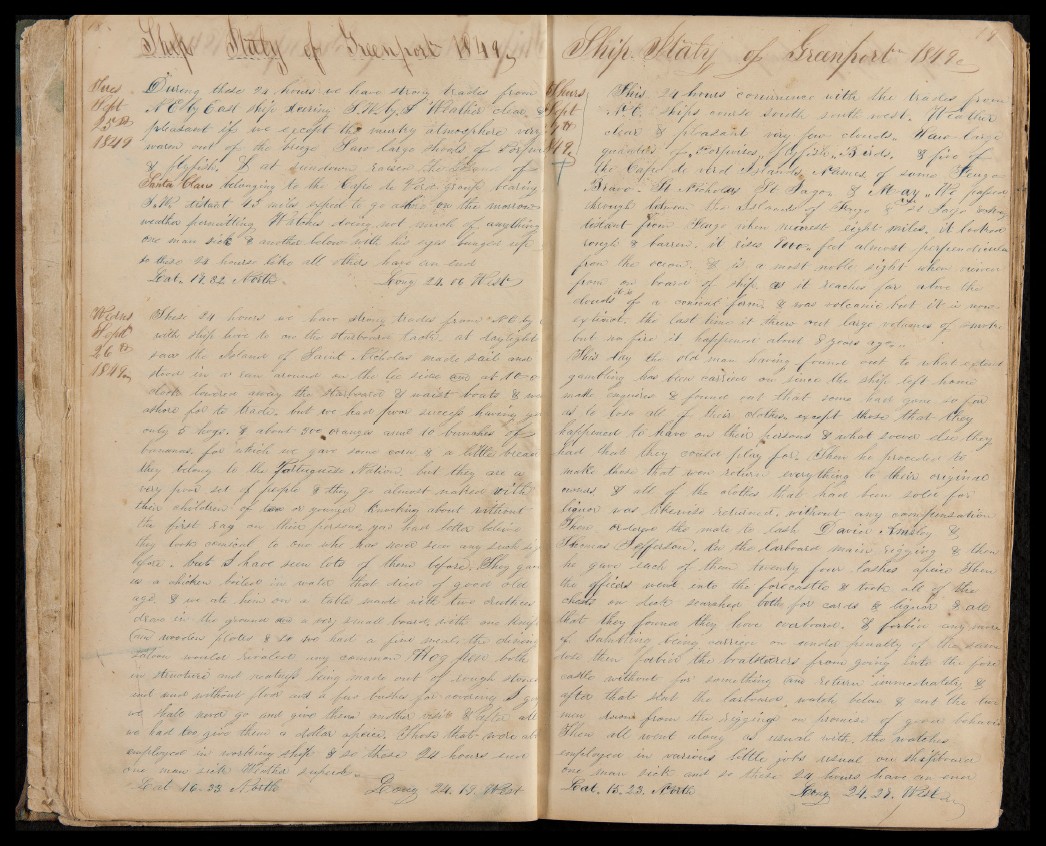 Ship Italy of Greenport 1849
Tues
Sept
25th
1849
During these 24 hours we have strong trades from
N E by East ship steering S.W. by S Weather clear &
pleasant if we except the sultry atmosphere very
warm out of the breeze Saw large shoals of
& flyfish. & at sundown raised the Island of
Santa Claus belonging to the Cape de Verd group bearing
S.W. distant 45 miles expect to go ashore on the morrow
weather permitting Watches doing not much of anything
one man sick & another below with his eyes bunged up
So these 24 hours like all others have an end
Lat. 17.32 North. Long 24.06 West
Wedns
Sept
26th
1849
These 24 hours we have strong trades from N.E. by
with ship hove to on the starboard tack. at daylight
saw the Island of Saint Nicholas made sail and
stood in & ran around on the lee side and at 10 o
clock lowered away the starboard & waist boats & went
ashore for to trade. but we had poor success having got
only 5 hogs. & about 300 oranges and 10 bunches of
bananas, for which we gave some corn & a little bread
they belong to the Portuguese Nation. but they are a
very poor set of people & they go almost naked with
their children of or younger knocking about without
the first rag on their persons, you had better believe
they look comical to one who has never seen any such
before. but I have seen lots of them before. They gave
us a chicken boiled in water that died of good old
age. & we ate him on a table made with two
drove in the ground and a very small board, with one
two wooden plates & so we had a fine meal. the dining
saloon would rivaled any common Hog pen both
in structure and neatness being made out of rough stones
and without floor and a few bushes for covering I
we shall never go and give them another visit & after all
we had to give them a dollar apiece. Those that were
employed in working ship & so these 24 hours end
one man sick Weather superb
Lat 16.33 North Long 24.19. West
Ship Italy of Greenport 1849
Thurs
Sept
27th
1849
This 24 hours commence with the trades from
N.E. Ships course South south west. Weather
clear & pleasant very few clouds. Saw large
quantities of Porpoises, flyfish, Birds, & five of
the Cape de verd Islands, Names of some Fuego
Bravo. St Nicholas St Jago & May. We passed
through between the Islands of Fuego & St Jago
distant from Fuego when nearest eight miles. it looked
rough & barren. it rises 9000 feet almost perpendicular
from the ocean. & is a most noble sight when viewed
from on board of ship as it reaches far above the
clouds it is of a conical form & was volcanic but it is now
extinct. the last time it threw out large volumes of smoke
but no fire it happened about 8 years ago.
This day the old man having found out to what extent
gambling has been carried on since the ship left home
made enquires & found out that some had gone so far
as to lose all of their clothes except those that they
happened to have on their persons & what soever else they
had that they could play for. Then he proceeded to
make those that won return everything to their original
owners & all of the clothes that had been sold for
liquor was likewise returned. without any compensation
Then ordered the mate to lash David &
Thomas Jefferson. In the larboard main rigging & then
he gave each of them twenty four lashes apiece Then
the officers went into the forecastle & took all of the
chests on deck searched both for cards & liquor & all
that they found they hove overboard. & forbid any more
of Gambling being carried on under penalty of the same
dose then forbid the boatsteerers from going into the fore
castle without for something and return immediately &
after that sent the larboard watch below & cut the two
men down from the rigging on promise of good behavior
Then all went along as usual with the watches
employed in various little jobs usual on shipboard
one man sick and so these 24 hours have an end
Lat. 15.23. North Long 24.27. West